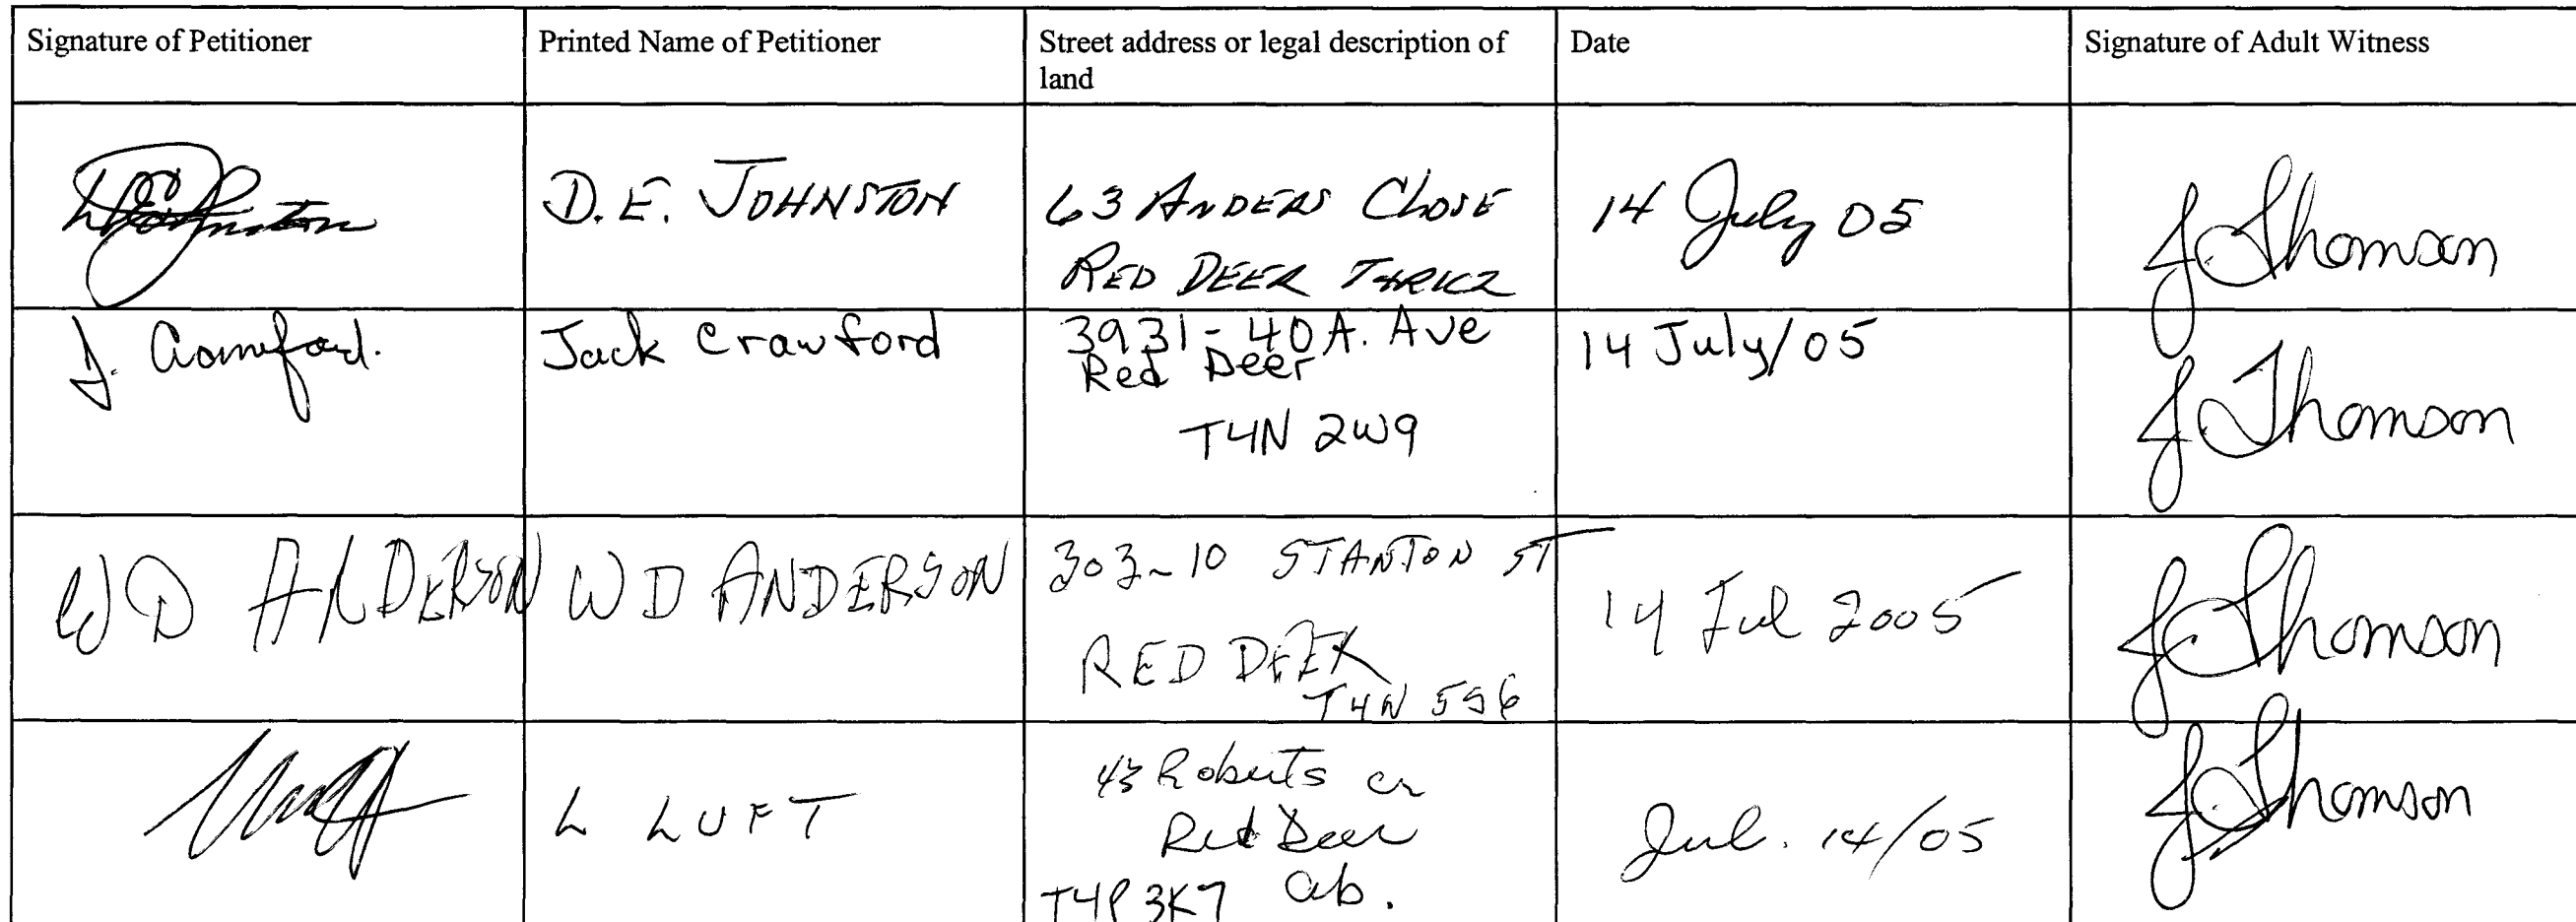 Signature of Petitioner
Printed Name of Petitioner
Street address or legal description of
land
Date
Signature of Adult Witness
D.E. JOHNSTON
63 ANDERS CLOSE
RED DEER T4R1C2
14 July 05
J Thomson
J. Crawford.
Jack Crawford
3931 - 40 A. Ave
Red Deer
T4N 2W9
14 July/05
J Thomson
W D ANDERSON
W D ANDERSON
303~10 STANTON ST
RED DEER
T4N
14 Jul 2005
J Thomson
L LUFT
43 Roberts cr
Red Deer
T4P 3K7 ab.
Jul. 14/05
J Thomson